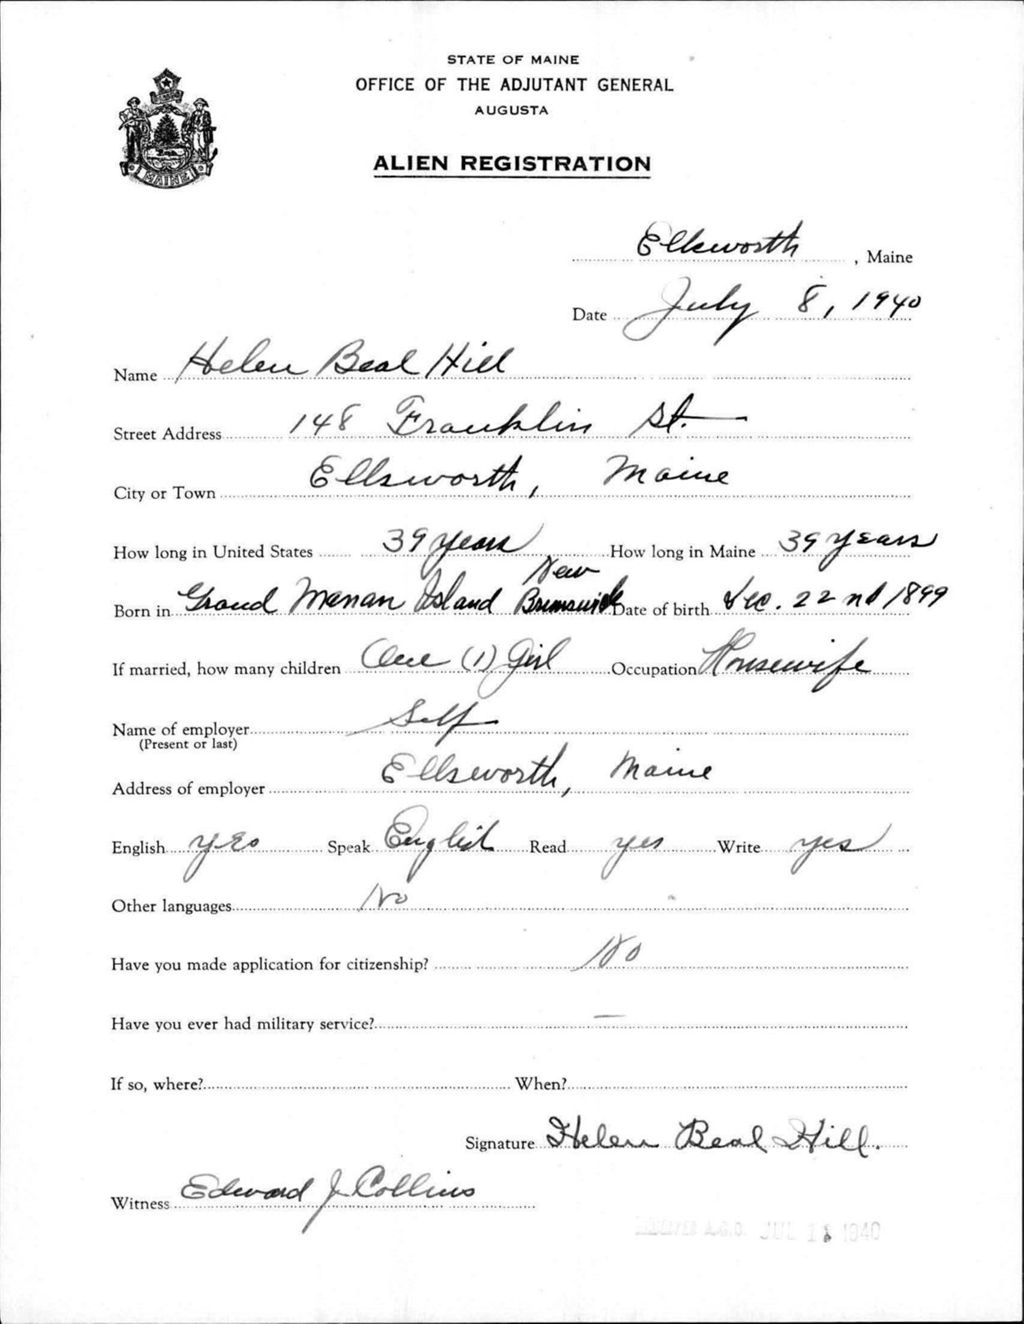 STATE OF MAINE
OFFICE OF THE ADJUTANT GENERAL
AUGUSTA
ALIEN REGISTRATION
MAINE
Ellsworth, Maine
Date July 8, 1940
Name Helen Beal Hill
Street Address 148 Franklin St.
City or Town Ellsworth, Maine
How long in United States 39 years How long in Maine 39 years
Born in Grand Manan Island New Brunswick Date of birth Dec. 22nd 1899
If married, how many children One (1) Girl Occupation Housewife
Name of employer Self
(Present or last)
Address of employer Ellsworth, Maine
English yes Speak English Read yes Write yes
Other languages No
Have you made application for citizenship? No
Have you ever had military service? —
If so, where? When?
Signature Helen Beal Hill.
Witness Edward J. Collins
A.G.O. JUL 1940